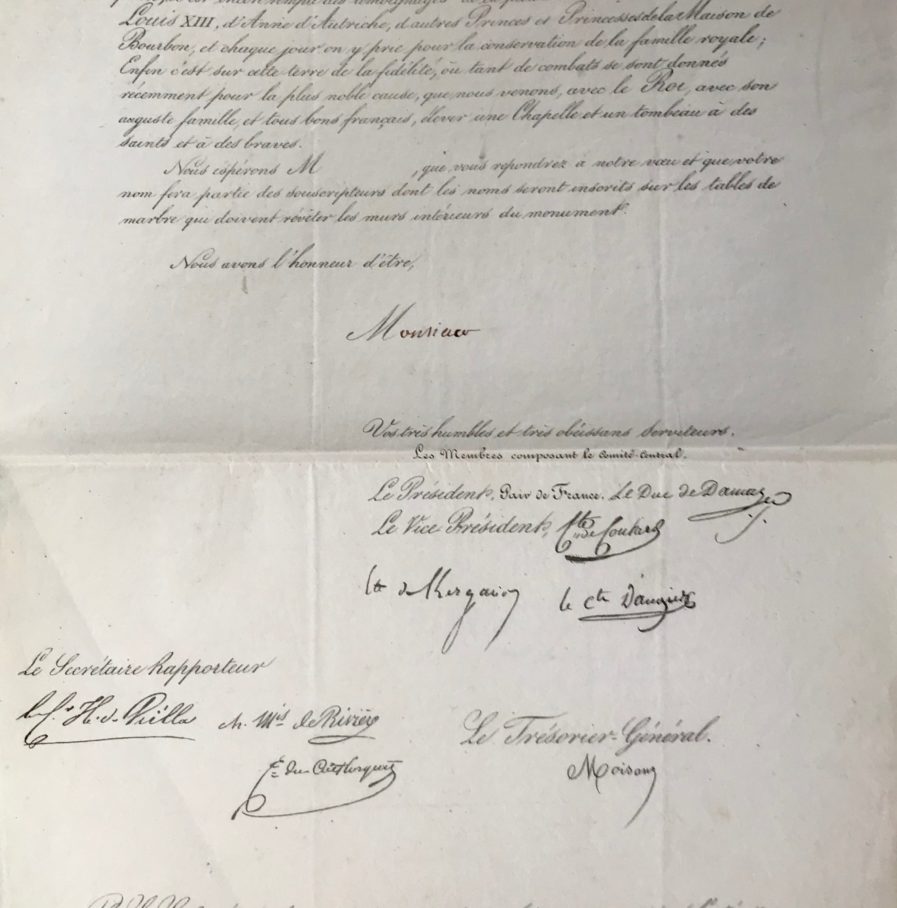 Louis XIII, d'Anne d'Autriche, d'autres Princes et Princesses de la Maison de
Bourbon, et chaque jour on y prie pour la conservation de la famille royale;
Enfin c'est sur cette terre de la fidélité, où tant de combats se sont donnés
récemment pour la plus noble cause, que nous venons, avec le Roi, avec son
auguste famille, et tous bons français, élever une Chapelle et un tombeau à des
saints et à des braves.
Nous espérons M , que vous repondrez à notre vœu et que votre
nom fera partie des souscripteurs dont les noms seront inscrits sur les tables de
marbre qui doivent revêter les murs intérieurs du monument.
Nous avons l'honneur d'être,
Monsieur
Vos très humbles et très obéissans Serviteurs.
Les Membres composant le Comité-Central.
Le Président, Pair de France. Le Duc de Damas
Le Vice Président, Cte de Coutard
le cte
Le Secrétaire Rapporteur
Mis de Rivière
Le Trésorier-Général.